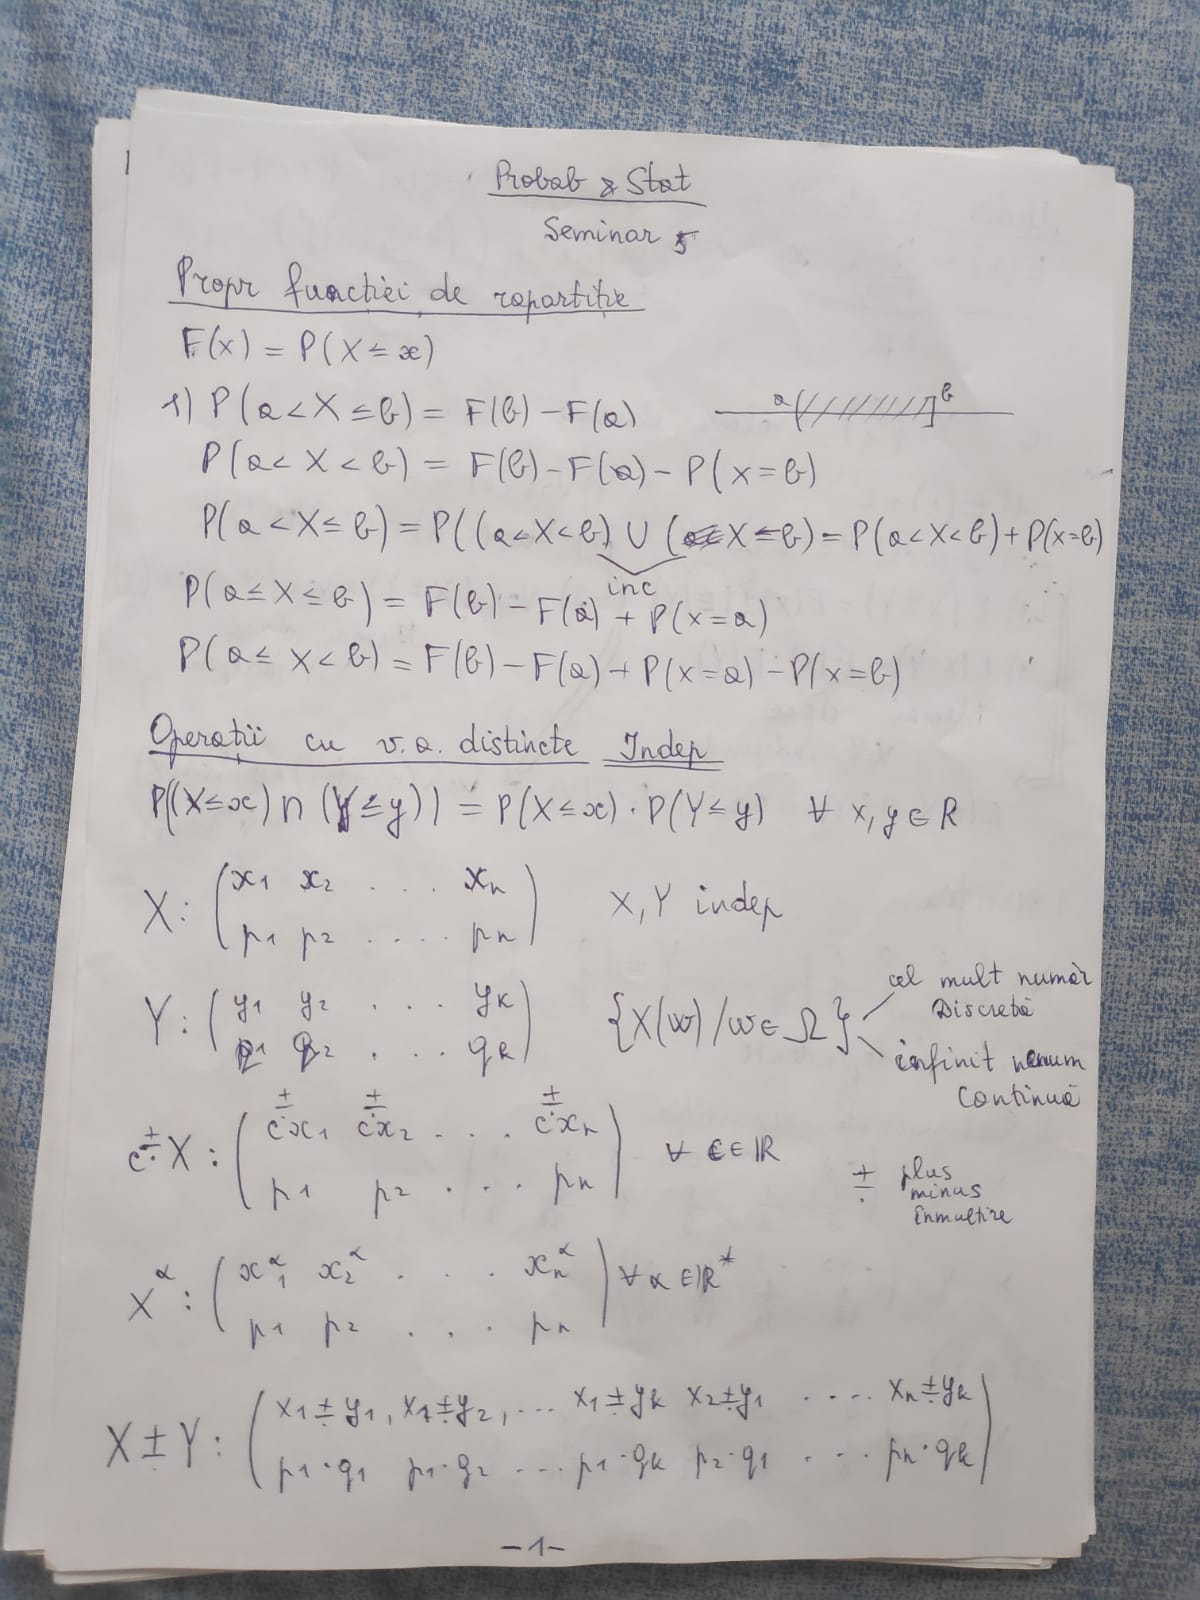 Probab & Stat
Seminar 5
Propr funcției de repartiție
F(x) = P(X ≤ x)
1) P(a < X ≤ b) = F(b) - F(a)
a ( ] b
P(a < X < b) = F(b) - F(a) - P(x = b)
P(a < X ≤ b) = P((a < X < b) ∪ (X = b) = P(a < X < b) + P(x = b)
inc
P(a ≤ X ≤ b) = F(b) - F(a) + P(x = a)
P(a ≤ X < b) = F(b) - F(a) + P(x = a) - P(x = b)
Operații cu v.a. distincte Indep
P((X ≤ x) ∩ (Y ≤ y)) = P(X ≤ x) · P(Y ≤ y) ∀ x, y ∈ R
X: ( x1 x2 . . . xn )
( p1 p2 . . . . pn )
X, Y indep
Y: ( y1 y2 . . . yk )
( q1 q2 . . . qk )
{X(w) / w ∈ Ω}
cel mult număr
Discretă
infinit nenum
Continuă
c ± · X : ( c ± · x1 c ± · x2 . . . c ± · xn )
( p1 p2 . . . pn )
∀ c ∈ ℝ
± · plus
minus
înmulțire
X^α : ( x1^α x2^α . . . xn^α )
( p1 p2 . . . pn )
∀ α ∈ ℝ*
X ± · Y : ( x1 ± · y1, x1 ± · y2, ... x1 ± · yk x2 ± · y1 .... xn ± · yk )
( p1·q1 p1·q2 ... p1·qk p2·q1 .... pn·qk )
-1-